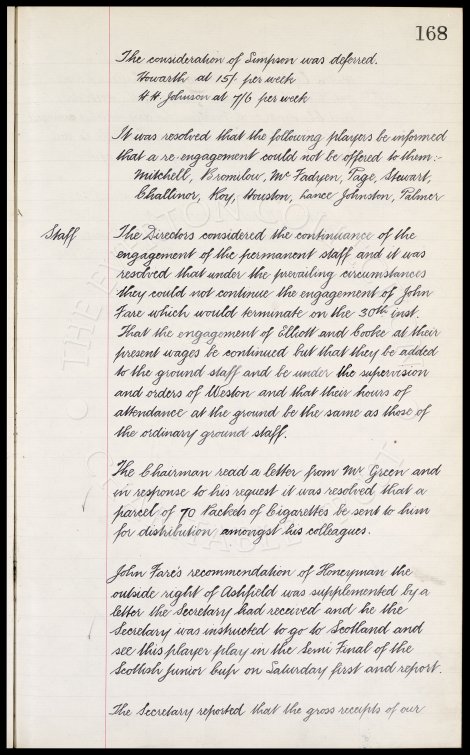 168
The consideration of Simpson was deferred.
Howarth at 15/. per week
H. H. Johnson at 7/6 per week
It was resolved that the following players be informed
that a re-engagement could not be offered to them:-
Mitchell, Bromilow, Mc Fadyen, Page, Stewart,
Challinor, Roy, Houston, Lance Johnston, Palmer
Staff The Directors considered the continuance of the
engagement of the permanent staff and it was
resolved that under the prevailing circumstances
they could not continue the engagement of John
Fare which would terminate on the 30th inst.
That the engagement of Elliott and Cooke at their
present wages be continued but that they be added
to the ground staff and be under the supervision
and orders of Weston and that their hours of
attendance at the ground be the same as those of
the ordinary ground staff.
The Chairman read a letter from Mr Green and
in response to his request it was resolved that a
parcel of 70 Packets of Cigarettes be sent to him
for distribution amongst his colleagues.
John Fare's recommendation of Honeyman the
outside right of Ashfield was supplemented by a
letter the Secretary had received and he the
Secretary was instructed to go to Scotland and
see this player play in the Semi Final of the
Scottish Junior Cup on Saturday first and report.
The Secretary reported that the gross receipts of our